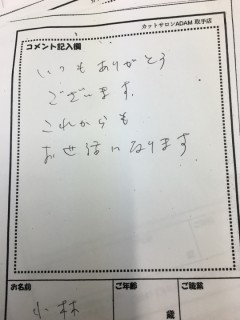 カットサロンADAM 取手店
コメント記入欄
いつもありがとう
ございます。
これからも
お世話になります
お名前
ご年齢
ご職業
小林
歳